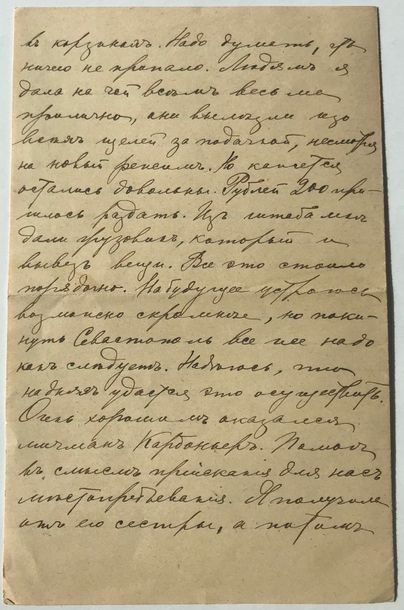 въ корзинахъ. Надо думать, что
ничего не пропало. Людямъ я
дала на чай всѣмъ весьма
прилично, они вылѣзли изо
всѣхъ щелей за подачкой, несмотря
на новый режимъ. Но кажется
остались довольны. Рублей 200 при-
шлось раздать. Изъ штаба мнѣ
дали грузовикъ, который и
вывезъ вещи. Все это стоило
порядочно. На будущее устроюсь
возможно скромнѣе, но поки-
нуть Севастополь все же надо
какъ слѣдуетъ. Надѣюсь, что
надняхъ удастся это осуществить.
Очень хорошимъ оказался
мичманъ Карбоньеръ. Помогъ
въ смыслѣ прiисканiя для насъ
мѣстопребыванiя. Я получила
отъ его сестры, а потомъ